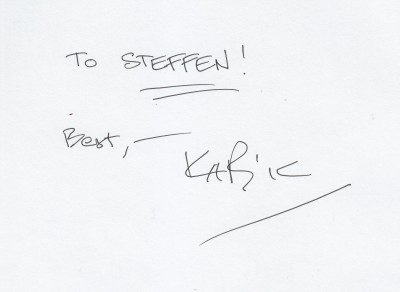 To STEFFEN!
Best,
KARIK